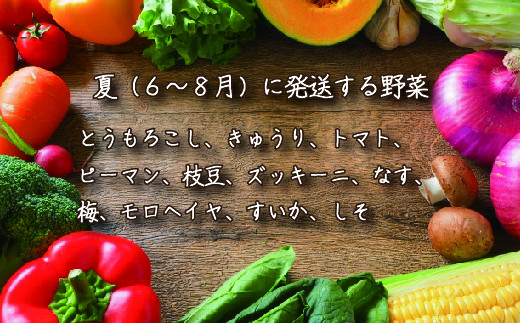 夏（６～８月）に発送する野菜
とうもろこし、きゅうり、トマト、
ピーマン、枝豆、ズッキーニ、なす、
梅、モロヘイヤ、すいか、しそ